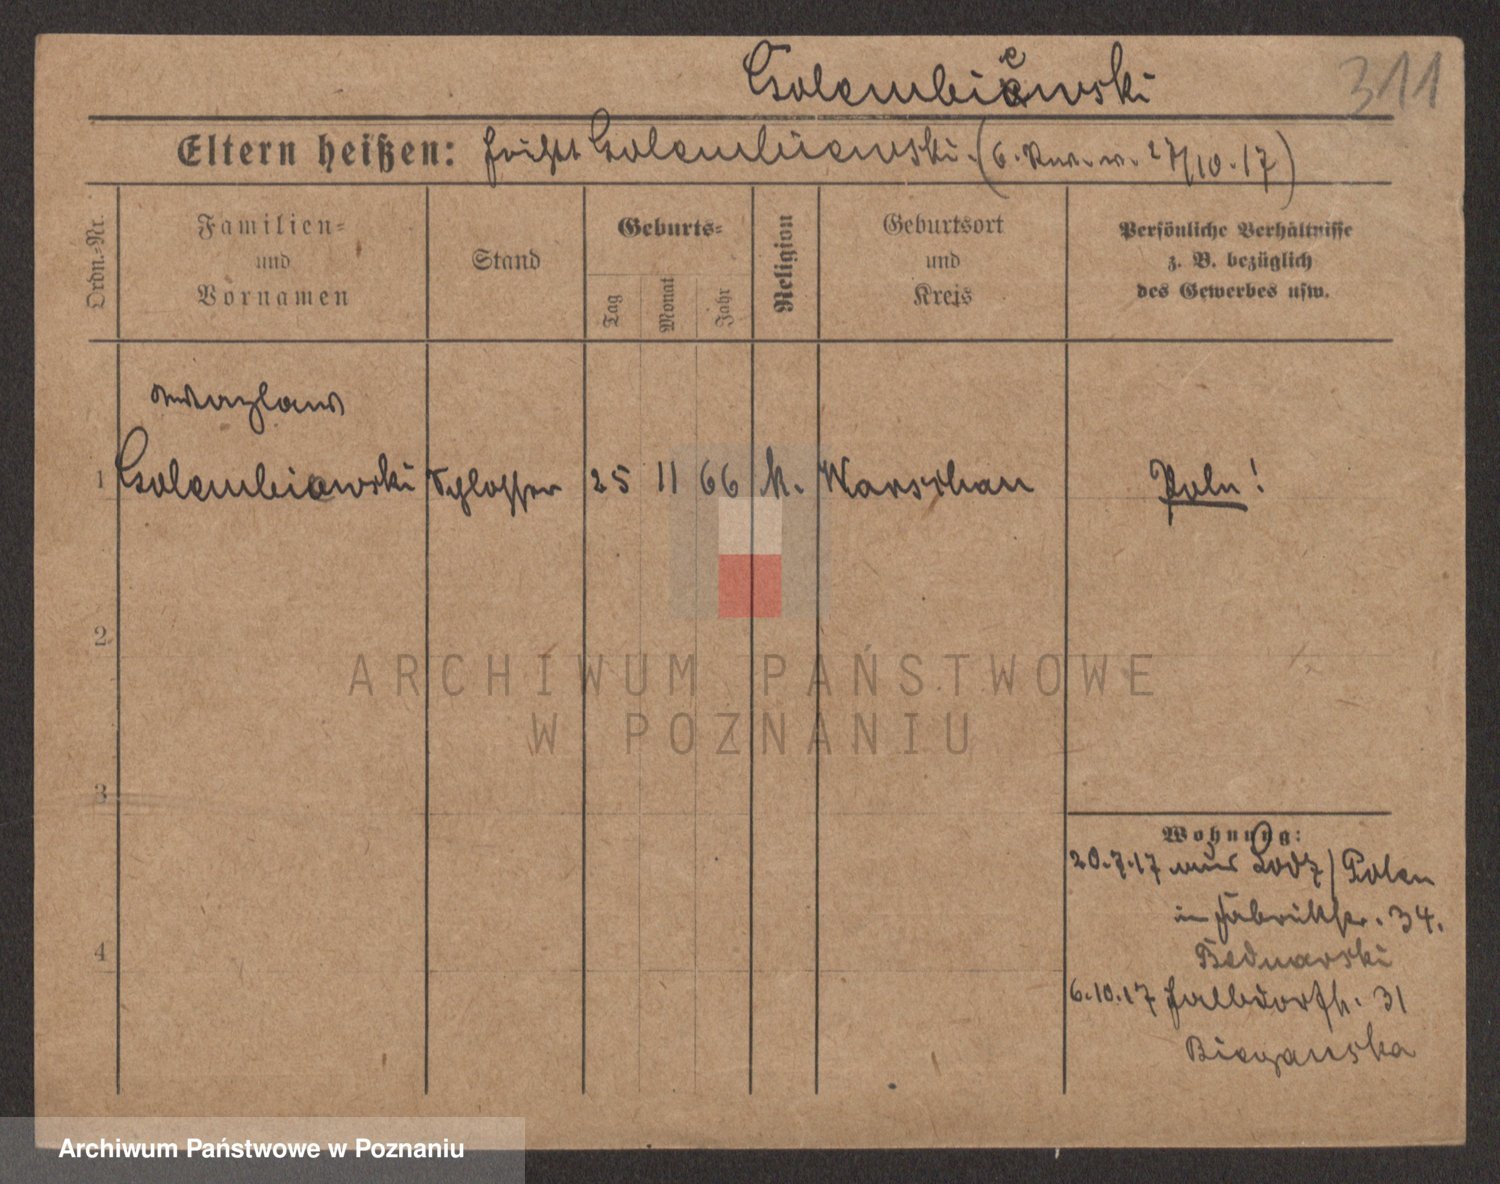 Golembiewski
311
Eltern heißen: heißt Golembiewski. (v. 27/10.17)
Ordn.-Nr.
Familien-
und
Vornamen
Stand
Geburts-
Tag
Monat
Jahr
Religion
Geburtsort
und
Kreis
Persönliche Verhältnisse
z. B. bezüglich
des Gewerbes usw.
Wazlaw
1 Golembiowski Schlosser 25 11 66 k. Warschau Pole!
2
ARCHIWUM PAŃSTWOWE
W POZNANIU
3
Wohnung:
20.7.17 aus Lodz/Polen
in Fabrikstr. 34.
Bednarski
4
6.10.17 Halbdorfstr. 31
Bieganska
Archiwum Państwowe w Poznaniu